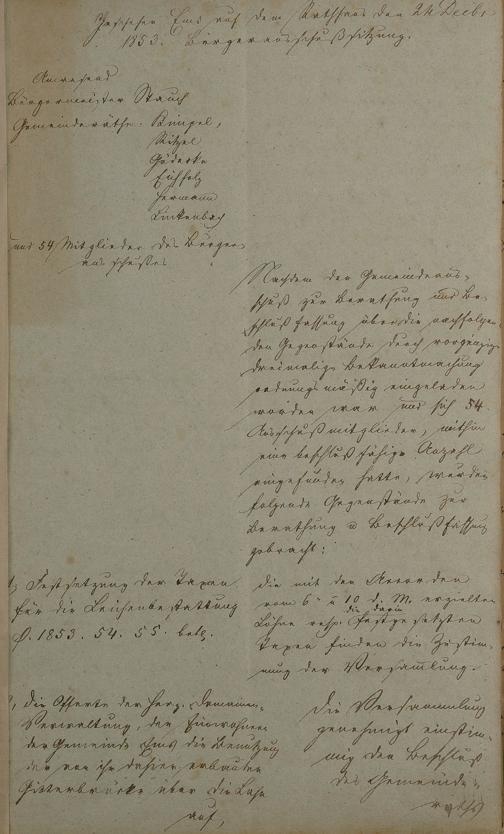 Geschehen Ems auf dem Rathhaus den 24 Decbr
1853. Bürgerausschußsitzung.
Anwesend
Bürgermeister Stauch
Gemeinderäthe. Kimpel,
Ritzel
Gödecke
Eichholz
Hermann
Linkenbach
und 54 Mitglieder des Bürger-
ausschußes
Nachdem der Gemeindeaus-
schuß zur Berathung und Be-
schlußfassung über die nachfolgen
den Gegenstände durch vorgängige
dreimalige Bekanntmachung
ordnungsmäßig eingeladen
worden war und sich 54
Ausschußmitglieder, mithin
eine beschlußfähige Anzahl
eingefunden hatte, wurden
folgende Gegenstände zur
Berathung u Beschlußfassung
gebracht:
1, Festsetzung der Taxen
für die Leichenbestattung
p. 1853. 54. 55. betr.
die mit den Accorden
vom 6. u 10 d. M. erzielten
Löhne resp. die darin festgesetzten
Taxen finden die Zustim-
mung der Versammlung.
2, die Offerte der Herz. Domänen-
Verwaltung, den Einwohnern
der Gemeinde Ems die Benutzung
der von ihr dahier erbauten
Gitterbrücke über die Lahn
auf,
Die Versammlung
genehmigt einstim-
mig den Beschluß
des Gemeinde-
raths